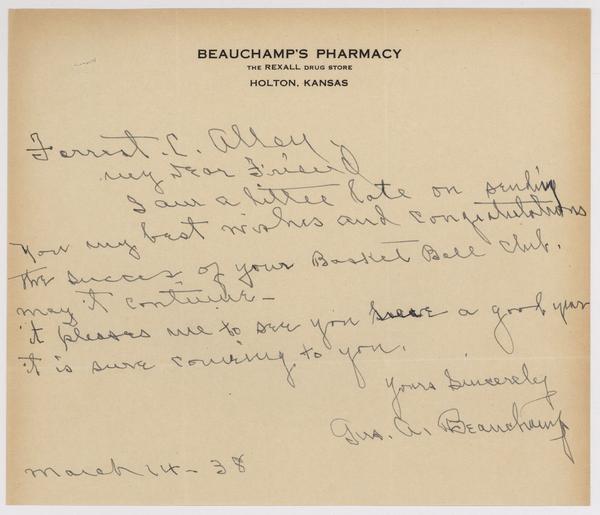 BEAUCHAMP'S PHARMACY
THE REXALL DRUG STORE
HOLTON, KANSAS
Forrest. C. Alley
my Dear Friend
I am a little late on sending
you my best wishes and congratulations
the succes of your Basket Ball Club.
may it contiuine -
it pleases me to see you have a good year
it is sure coming to you.
yours Sincerely
Gus. A. Beauchamp
March 14 - 38